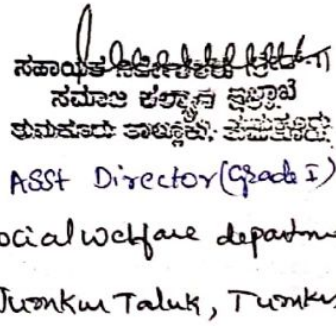 ಸಹಾಯಕ ನಿರ್ದೇಶಕರು ಗ್ರೇಡ್-1
ಸಮಾಜ ಕಲ್ಯಾಣ ಇಲಾಖೆ
ತುಮಕೂರು ತಾಲ್ಲೂಕು, ತುಮಕೂರು.
ASSt Director (Grade I)
ocial welfare departme
Tumkur Taluk, Tumku